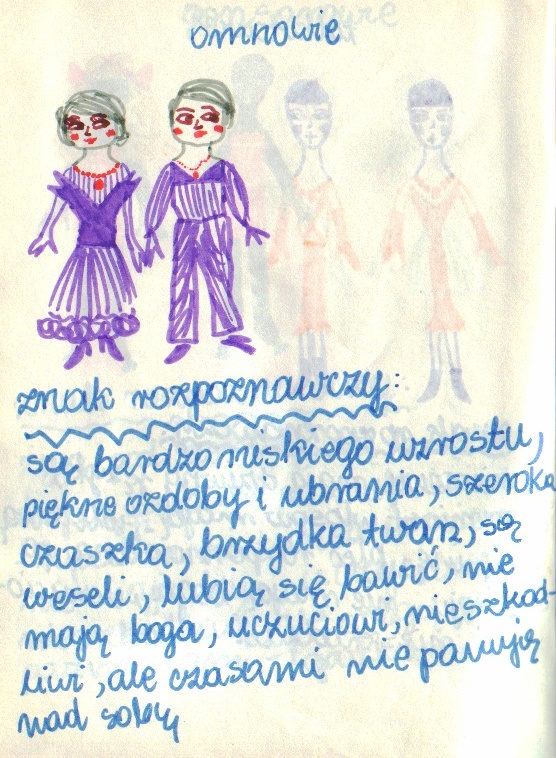 omnowie
znak rozpoznawczy:
są bardzo niskiego wzrostu,
piękne ozdoby i ubrania, szeroka
czaszka, brzydka twarz, są
weseli, lubią się bawić, nie
mają boga, uczuciowi, nieszkod-
liwi, ale czasami nie panują
nad sobą